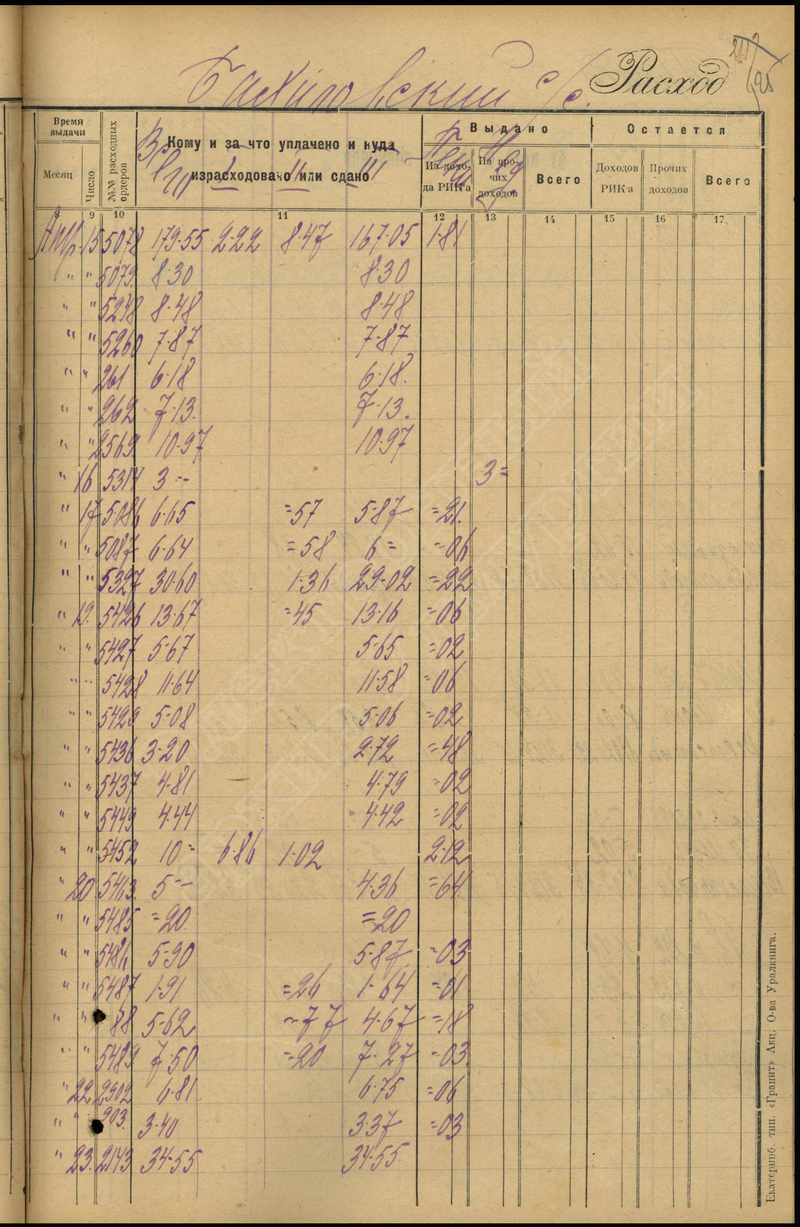 с/с. Расход
Время выдачи
№№ расходных ордеров
Кому и за что уплачено и куда израсходовано или сдано
Выдано
Остается
Месяц
Число
Из дохода РИК'а
Из прочих доходов
Всего
Доходов РИК'а
Прочих доходов
Всего
9 10 11 12 13 14 15 16 17
Апр. 15 5078 179-55 2-22 8-47 167-05 1-81
" " 5079 8-30 8-30
" " 5248 8-48 8-48
" " 5260 7-87 7-87
" " 261 6-18 6-18.
" " 262 7-13. 7-13.
" " 2569 10-97 10-97
" 16 5314 3 -- 3=
" 17 5086 6-65 =57 5-87 =21.
" " 5087 6-64 =58 6= =06
" " 5327 30-60 1-36 29-02 =22
" 19. 5426 13-67 =45 13-16 =06
" " 5427 5-67 5-65 =02
" " 5428 11-64 11-58 =06
" " 5429 5-08 5-06 =02
" " 5436 3-20 2-72 =48
" " 5437 4-81 4-79 =02
" " 5449 4-44 4-42 =02
" " 5452 10= 6-86 1-02 2-12
" 20 5463 5 -- 4-36 =64
" " 5485 =20 =20
" " 5486 5-90 5-87 =03
" " 5487 1-91 =26 1-64 =01
" " 88 5-62 =77 4-67 =18
" " 5489 7-50 =20 7-27 =03
" 22 2902 6-81 6-75 =06
" " 903. 3-40 3-37 =03
" 23. 2143 34-55 34-55
Екатеринб. тип. «Гранит» Акц. О-ва Уралкнига.